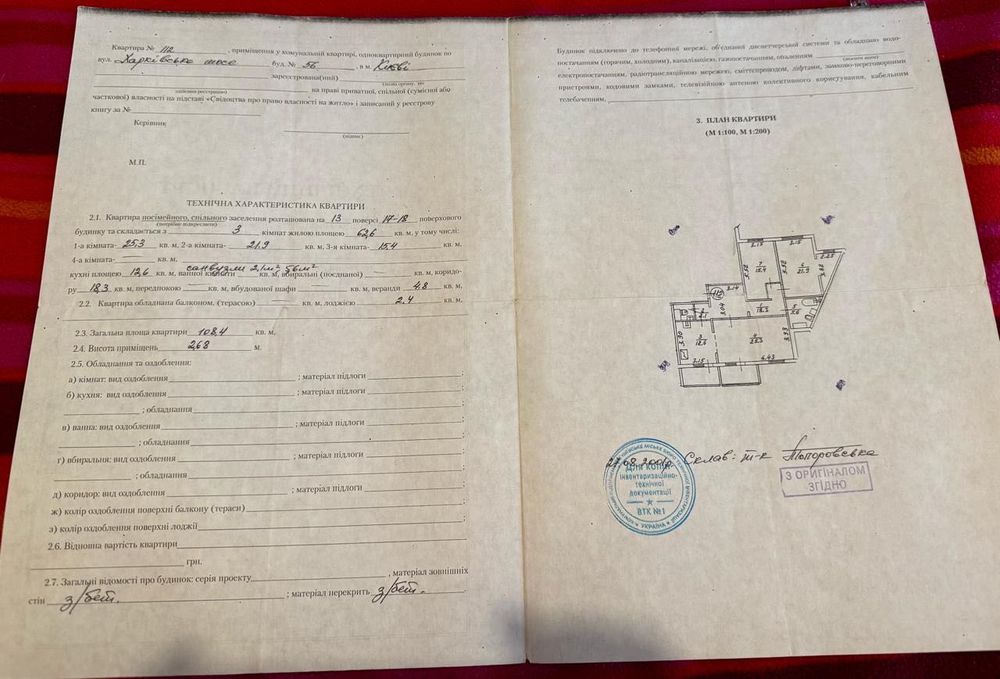 Квартира № 112 , приміщення у комунальній квартирі, одноквартирний будинок по
вул. Харківське шосе буд. № 56 , в м. Києві
зареєстрована(ний)
на праві приватної, спільної (сумісної або
часткової) власності на підставі «Свідоцтва про право власності на житло» і записаний у реєстрову
книгу за №
Керівник
(підпис)
М.П.
ТЕХНІЧНА ХАРАКТЕРИСТИКА КВАРТИРИ
2.1. Квартира посімейного, спільного заселення розташована на 13 поверсі 17-18 поверхового
(потрібне підкреслити)
будинку та складається з 3 кімнат жилою площею 62,6 кв. м, у тому числі:
1-а кімната- 25,3 кв. м, 2-а кімната- 21.9 кв. м, 3-я кімната- 15.4 кв. м,
4-а кімната- — кв. м.
санвузли 2,1м² 5,6м²
кухні площею 12,6 кв. м, ванної кімнати — кв. м, вбиральні (поєднаної) — кв. м, коридо-
ру 18,3 кв. м, передпокою — кв. м, вбудованої шафи — кв. м, веранди 4.8 кв. м,
2.2. Квартира обладнана балконом. (терасою) — кв. м, лоджією 2.4 кв. м.
2.3. Загальна площа квартири 108,4 кв. м.
2.4. Висота приміщень 2,68 м.
2.5. Обладнання та оздоблення:
а) кімнат: вид оздоблення ; матеріал підлоги ;
б) кухня: вид оздоблення ; матеріал підлоги ;
; обладнання ;
в) ванна: вид оздоблення ; матеріал підлоги ;
; обладнання ;
г) вбиральня: вид оздоблення ; матеріал підлоги ;
; обладнання ;
д) коридор: вид оздоблення ; матеріал підлоги ;
ж) колір оздоблення поверхні балкону (тераси) ;
з) колір оздоблення поверхні лоджії
2.6. Відновна вартість квартири
грн.
2.7. Загальні відомості про будинок: серія проекту , матеріал зовнішніх
стін з/бет. ; матеріал перекрить з/бет.
Будинок підключено до телефонної мережі, об'єднаної диспетчерської системи та обладнано водо-
постачанням (горячим, холодним), каналізацією, газопостачанням, опаленням
електропостачанням, радіотрансляційною мережею, сміттєпроводом, ліфтами, замково-переговорними
пристроями, кодовими замками, телевізійною антеною колективного користування, кабельним
телебаченням,
3. ПЛАН КВАРТИРИ
(М 1:100, М 1:200)
7
15.4
21.9
112
18.3
12.6
25.3
3.30
6.43
08.2001р. Склав: т-к Топоровська
Для копій
інвентаризаційно-
технічної
документації
ВТК №1
УКРАЇНА
З ОРИГІНАЛОМ
ЗГІДНО